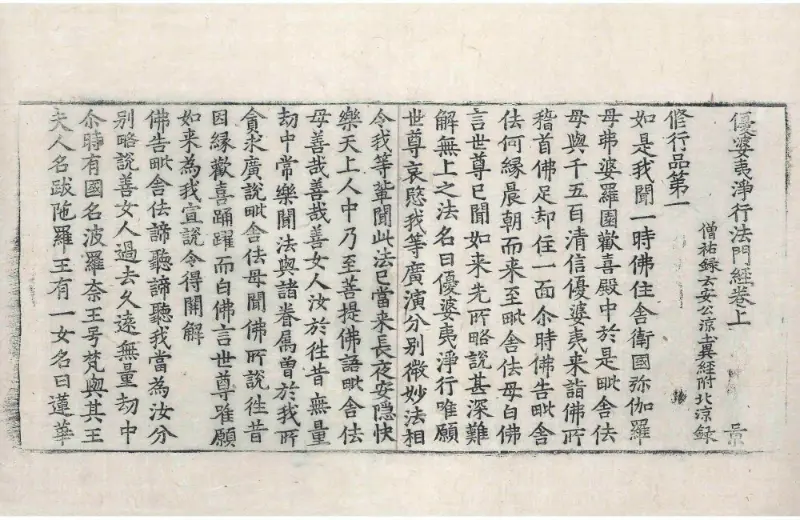 優婆夷淨行法門經卷上 景
僧祐録云安公凉土異經附北凉録
修行品第一
如是我聞一時佛住舍衛國弥伽羅
母弗婆羅園歡喜殿中於是毗舍佉
母與千五百清信優婆夷来詣佛所
稽首佛足却住一面尒時佛告毗舍
佉何縁晨朝而来至毗舍佉母白佛
言世尊已聞如来先所略說甚深難
解無上之法名曰優婆夷淨行唯願
世尊哀愍我等廣演分别微妙法相
令我等輩聞此法已當来長夜安隐快
樂天上人中乃至菩提佛語毗舍佉
母善哉善哉善女人汝於徃昔無量
劫中常樂聞法與諸眷屬曾於我所
貪求廣說毗舍佉母聞佛所說徃昔
因縁歡喜踊躍而白佛言世尊唯願
如来為我宣說令得開解
佛告毗舍佉諦聽諦聽我當為汝分
别略說善女人過去久遠無量劫中
尒時有國名波羅奈王号梵與其王
夫人名跋陁羅王有一女名曰蓮華